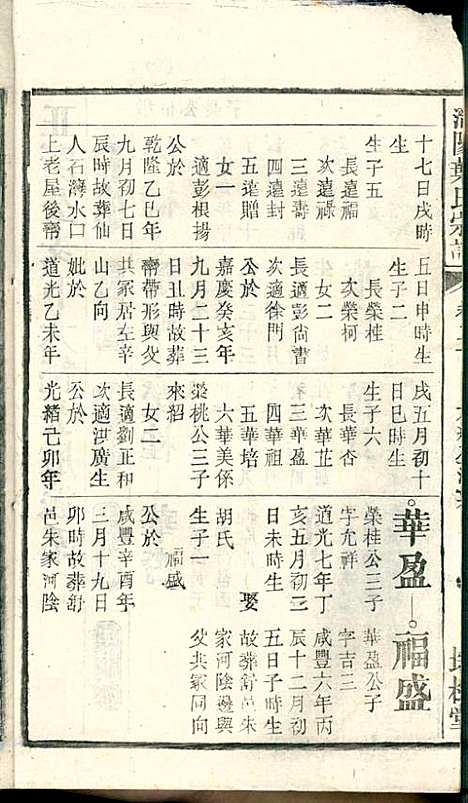 葉氏宗譜
十七日戌時
生
生子五
長遠福
次遠祿
三遠壽
四遠封
五遠贈
女一
適彭根揚
公於
乾隆乙巳年
九月初七日
辰時故葬仙
人石灣水口
上老屋後嵛
五日申時生
生子二
長榮桂
次榮柯
女二
長適彭尚書
次適徐門
公於
嘉慶癸亥年
九月二十三
日丑時故葬
嵛帶形與父
共冢居左辛
山乙向
妣於
道光乙未年
戌五月初十
日巳時生
生子六
長華杏
次華芷
三華盈
四華祖
五華培
六華美係
榮桃公三子
來紹
女二
長適劉正和
次適沈廣生
公於
光緒己卯年
華盈
榮桂公三子
字允祥
道光七年丁
亥五月初二
日未時生
娶
胡氏
生子一
福盛
公於
咸豐辛酉年
三月十九日
卯時故葬舒
邑朱家河陰
福盛
華盈公子
字吉三
咸豐六年丙
辰十二月初
五日時生
故葬舒邑朱
家河陰邊與
父共冢同向